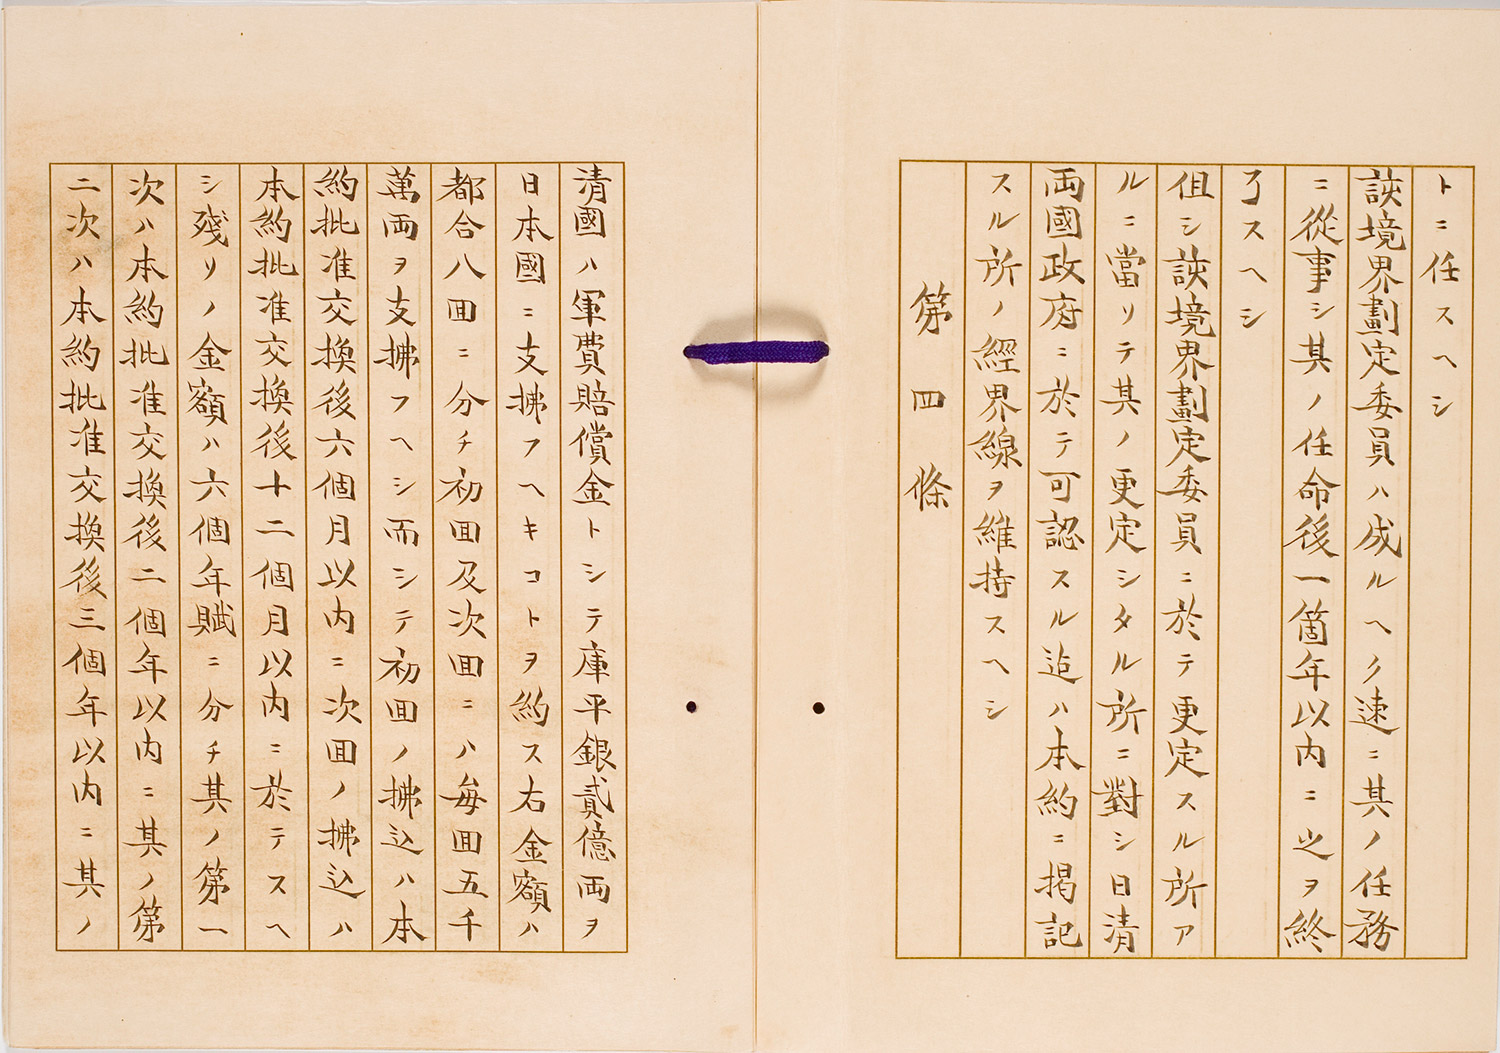 トニ任スヘシ
該境界劃定委員ハ成ルヘク速ニ其ノ任務
ニ從事シ其ノ任命後一箇年以内ニ之ヲ終
了スヘシ
但シ該境界劃定委員ニ於テ更定スル所ア
ルニ當リテ其ノ更定シタル所ニ對シ日清
両國政府ニ於テ可認スル迠ハ本約ニ掲記
スル所ノ經界線ヲ維持スヘシ
第四條
清國ハ軍費賠償金トシテ庫平銀貳億両ヲ
日本國ニ支拂フヘキコトヲ約ス右金額ハ
都合八回ニ分チ初回及次回ニハ毎回五千
萬両ヲ支拂フヘシ而シテ初回ノ拂込ハ本
約批准交換後六個月以内ニ次回ノ拂込ハ
本約批准交換後十二個月以内ニ於テスヘ
シ殘リノ金額ハ六個年賦ニ分チ其ノ第一
次ハ本約批准交換後二個年以内ニ其ノ第
二次ハ本約批准交換後三個年以内ニ其ノ